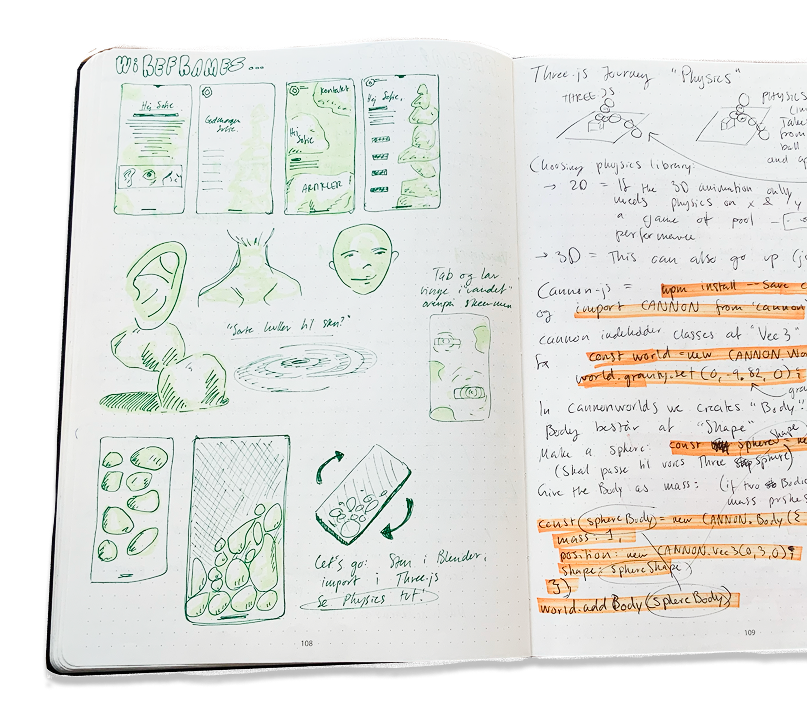 WIREFRAMES...
Hej Sofie
Hej
Sofie
Kontakt
ARTIKLER!
Hej Sofie,
"Sorte huller til sten?"
Tab og lav
ringe i vandet"
ovenpå skærmen
Let's go: Sten i Blender,
import i Three.js
Se Physics tut!
108
Three.js Journey "Physics"
THREE.JS
PHYSICS
Choosing physics library:
→ 2D = If the 3D animation only
needs physics on x & y
a game of pool –
performance
→ 3D = This can also go up (j
Cannon-js = npm install --save c
og import CANNON from 'cannon
cannon indeholder classes at "Vec3"
fx const world = new CANNON.Wo
world.gravity.set(0, -9.82, 0){
gra
In cannonworlds we creates "Body"
Body består af "Shape"
Make a sphere: const sphereShape = ne
(Skal passe til vores Three sphere)
Give the Body as mass: (if two Bodie
mass
const sphereBody = new CANNON.Body({
mass: 1,
position: new CANNON.Vec3(0,3,0),
shape: sphereShape
})
world.addBody(sphereBody)
109